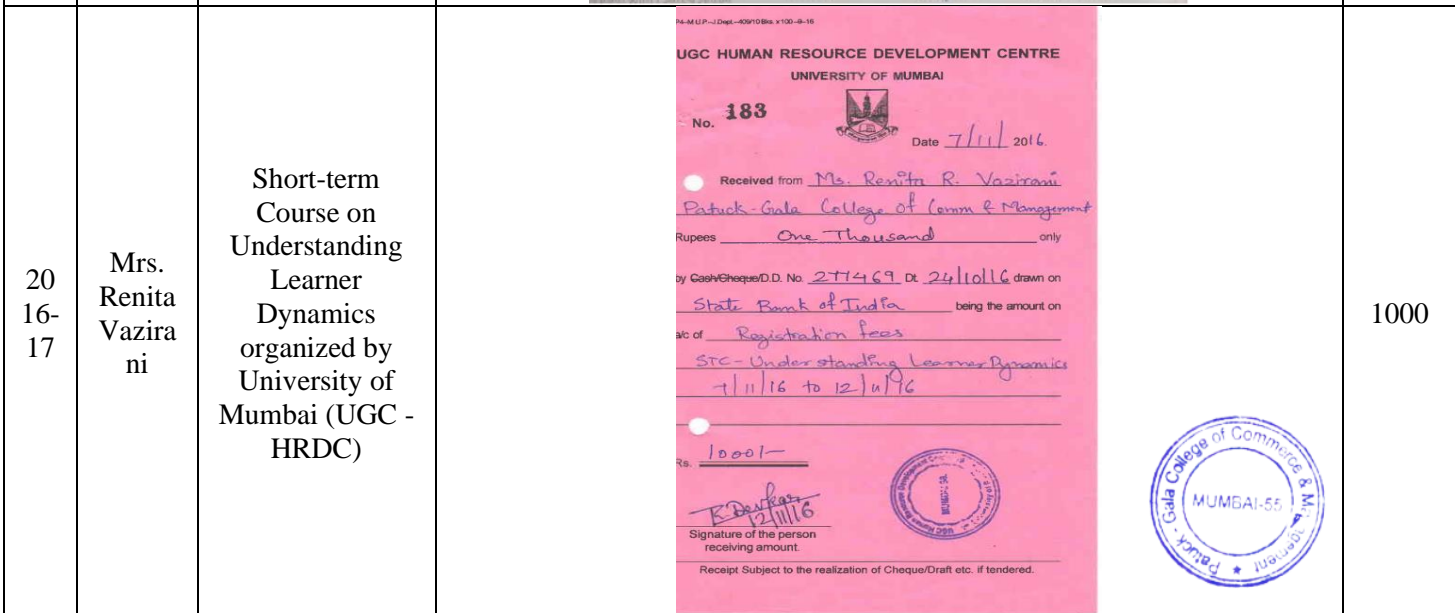 20
16-
17
Mrs.
Renita
Vazira
ni
Short-term
Course on
Understanding
Learner
Dynamics
organized by
University of
Mumbai (UGC -
HRDC)
P4-M.U.P.-J.Dept.-409/10 Bks. x 100-9-16
UGC HUMAN RESOURCE DEVELOPMENT CENTRE
UNIVERSITY OF MUMBAI
No. 183
Date 7/11/ 2016.
Received from Ms. Renita R. Vazirani
Patuck-Gala College of Comm & Management
Rupees One Thousand only
by Cash/Cheque/D.D. No. 277469 Dt. 24/10/16 drawn on
State Bank of India being the amount on
a/c of Registration fees
STC - Understanding Learner Dynamics
7/11/16 to 12/11/16
Rs. 1000/-
K Devkar
12/11/16
Signature of the person
receiving amount.
Receipt Subject to the realization of Cheque/Draft etc. if tendered.
Patuck - Gala College of Commerce & Management
MUMBAI-55
1000